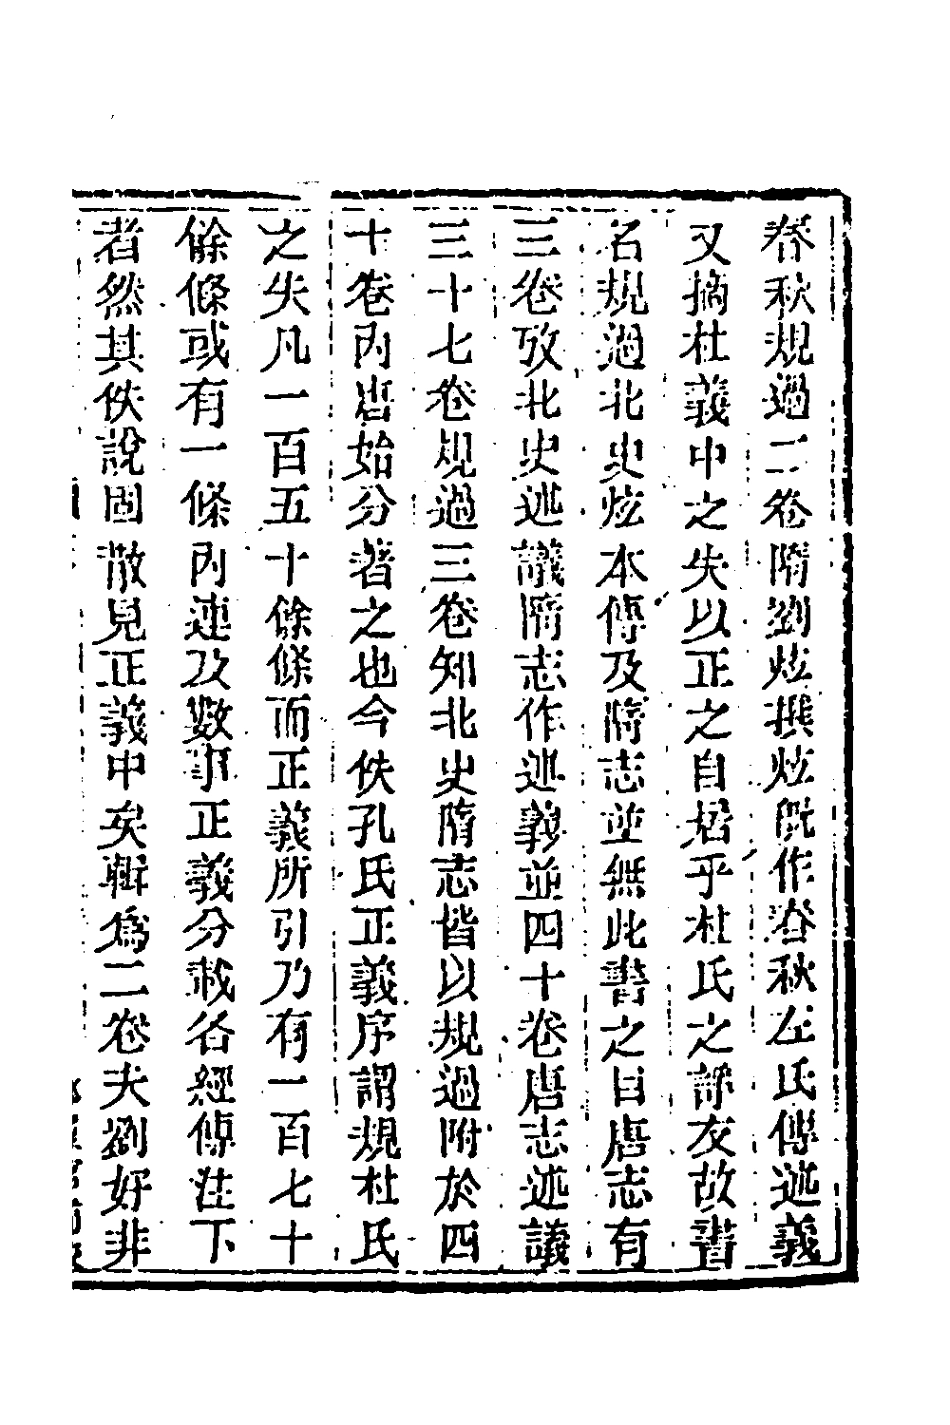 春秋規過二卷隋劉炫撰炫既作春秋左氏傳述義
又摘杜義中之失以正之自居乎杜氏之諍友故書
名規過北史炫本傳及隋志並無此書之目唐志有
三卷攷北史述議隋志作述義並四十卷唐志述議
三十七卷規過三卷知北史隋志皆以規過附於四
十卷內唐始分著之也今佚孔氏正義序謂規杜氏
之失凡一百五十餘條而正義所引乃有一百七十
餘條或有一條內連及數事正義分載各經傳注下
者然其佚說固散見正義中矣輯為二卷夫劉好非